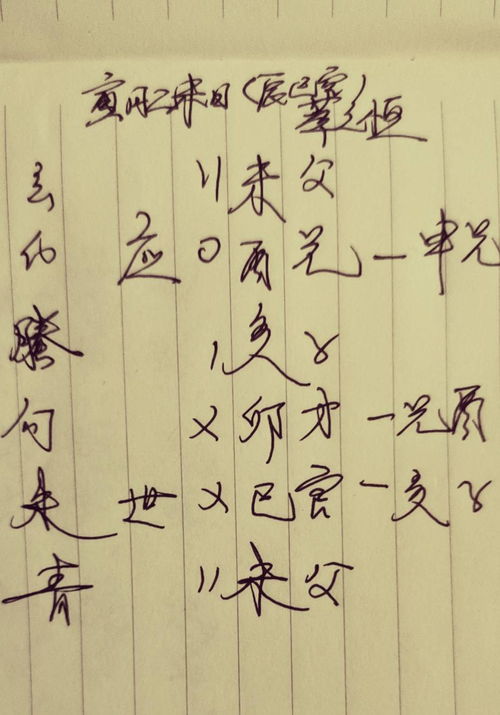 寅月乙未日（辰巳空）
萃之恒
玄 〃未父
白 应 〇酉兄 — 申兄
腾 〡亥子
勾 ✕卯才 — 兄酉
朱 世 ✕巳官 — 亥子
青 〃未父